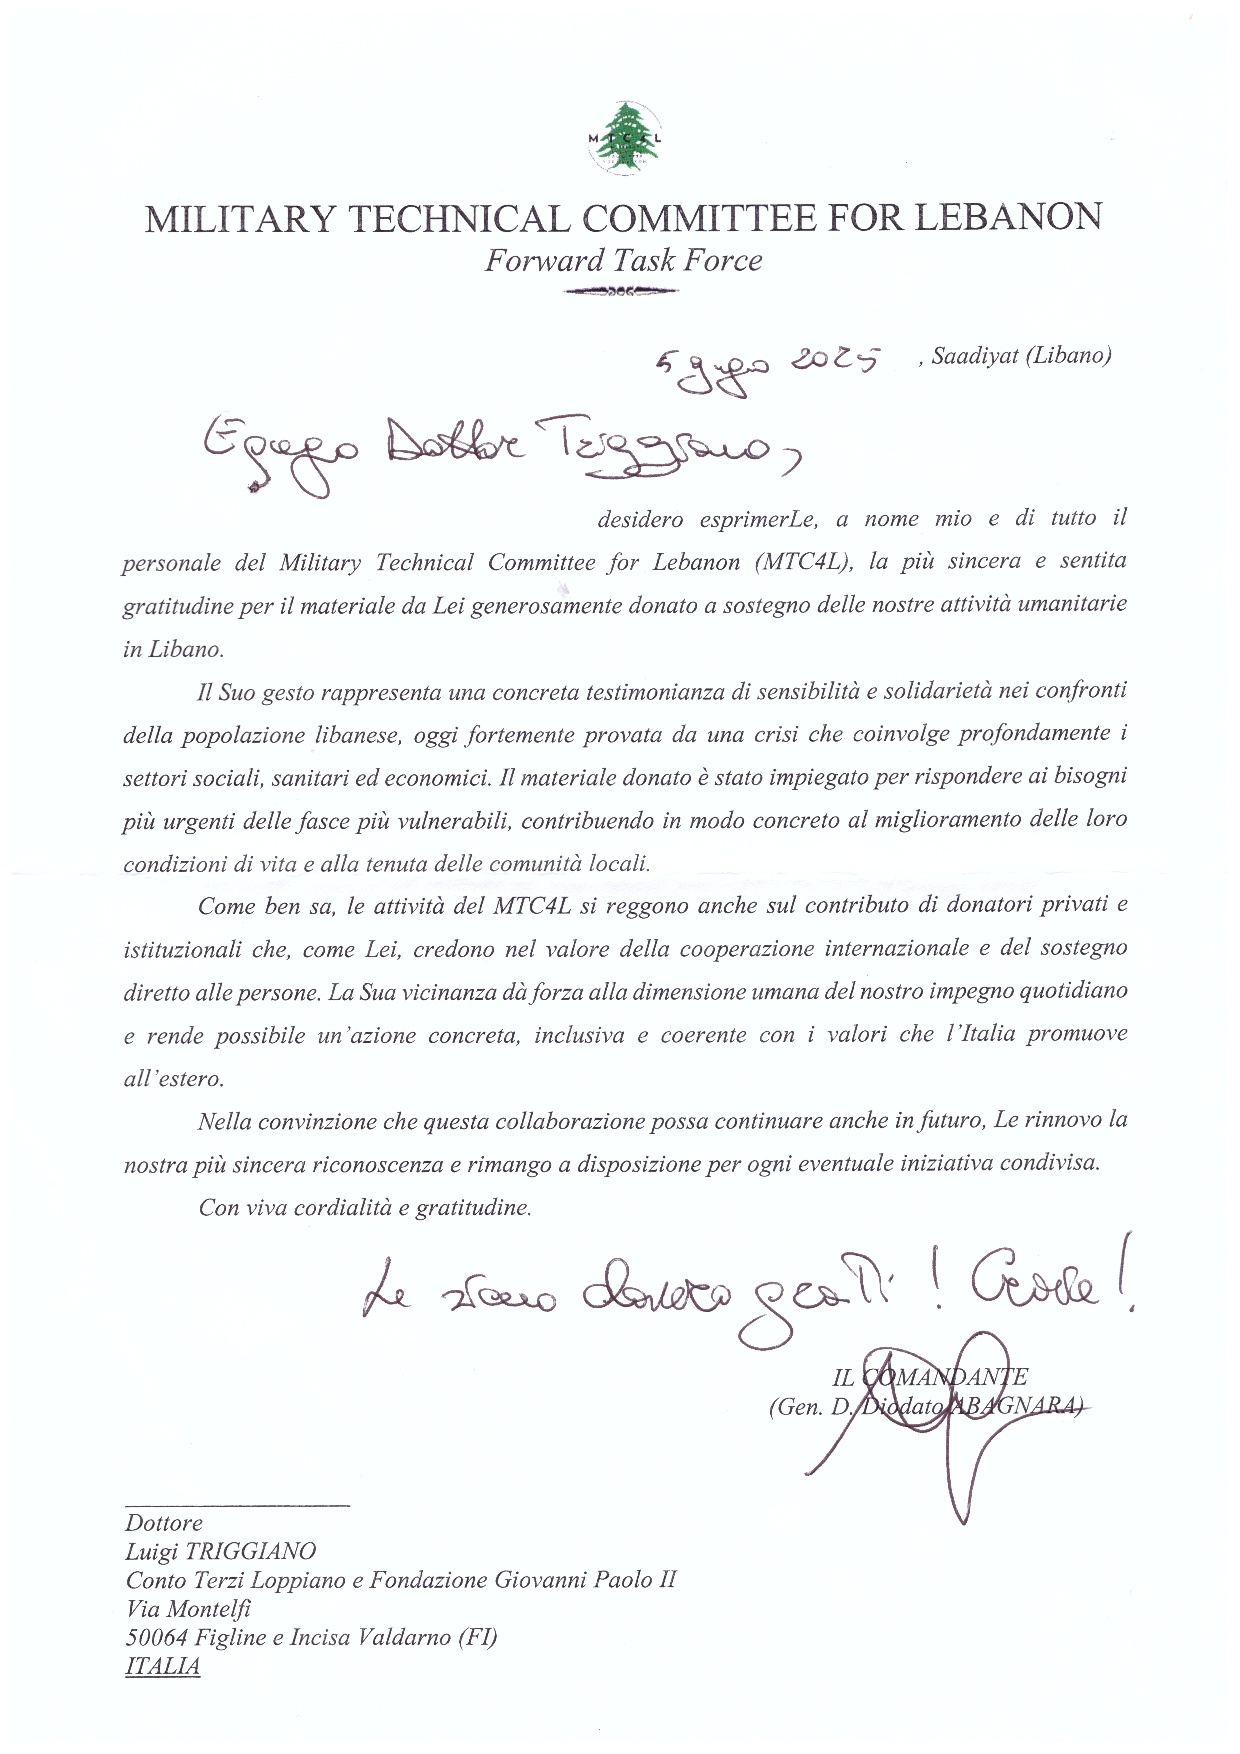 MTC4L
MILITARY TECHNICAL COMMITTEE FOR LEBANON
Forward Task Force
5 giugno 2025 , Saadiyat (Libano)
Egregio Dottor Triggiano,
desidero esprimerLe, a nome mio e di tutto il
personale del Military Technical Committee for Lebanon (MTC4L), la più sincera e sentita
gratitudine per il materiale da Lei generosamente donato a sostegno delle nostre attività umanitarie
in Libano.
Il Suo gesto rappresenta una concreta testimonianza di sensibilità e solidarietà nei confronti
della popolazione libanese, oggi fortemente provata da una crisi che coinvolge profondamente i
settori sociali, sanitari ed economici. Il materiale donato è stato impiegato per rispondere ai bisogni
più urgenti delle fasce più vulnerabili, contribuendo in modo concreto al miglioramento delle loro
condizioni di vita e alla tenuta delle comunità locali.
Come ben sa, le attività del MTC4L si reggono anche sul contributo di donatori privati e
istituzionali che, come Lei, credono nel valore della cooperazione internazionale e del sostegno
diretto alle persone. La Sua vicinanza dà forza alla dimensione umana del nostro impegno quotidiano
e rende possibile un'azione concreta, inclusiva e coerente con i valori che l'Italia promuove
all'estero.
Nella convinzione che questa collaborazione possa continuare anche in futuro, Le rinnovo la
nostra più sincera riconoscenza e rimango a disposizione per ogni eventuale iniziativa condivisa.
Con viva cordialità e gratitudine.
Le siamo davvero grati! Grazie!
IL COMANDANTE
(Gen. D. Diodato ABAGNARA)
Dottore
Luigi TRIGGIANO
Conto Terzi Loppiano e Fondazione Giovanni Paolo II
Via Montelfi
50064 Figline e Incisa Valdarno (FI)
ITALIA